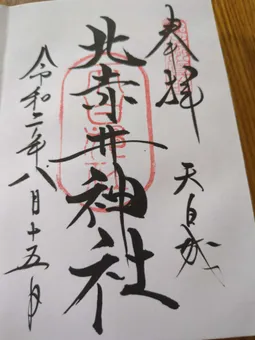 奉拝
天白城
北赤井神社
令和二年八月十五日